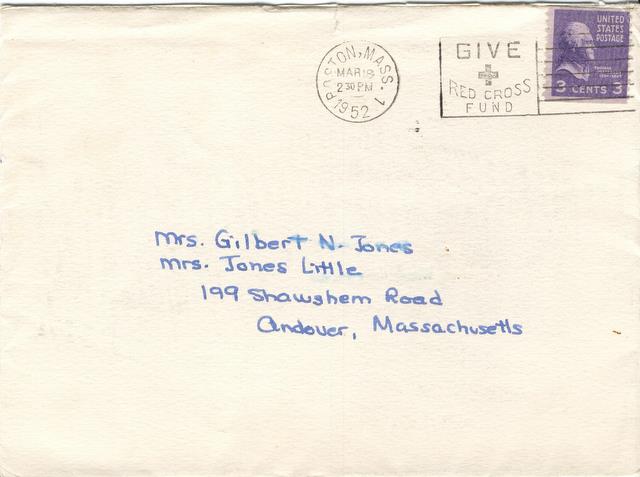 BOSTON, MASS. 1
MAR 18
2 30 PM
1952
GIVE
RED CROSS
FUND
UNITED
STATES
POSTAGE
3 CENTS 3
Mrs. Gilbert N. Jones
Mrs. Jones Little
199 Shawshem Road
Andover, Massachusetts